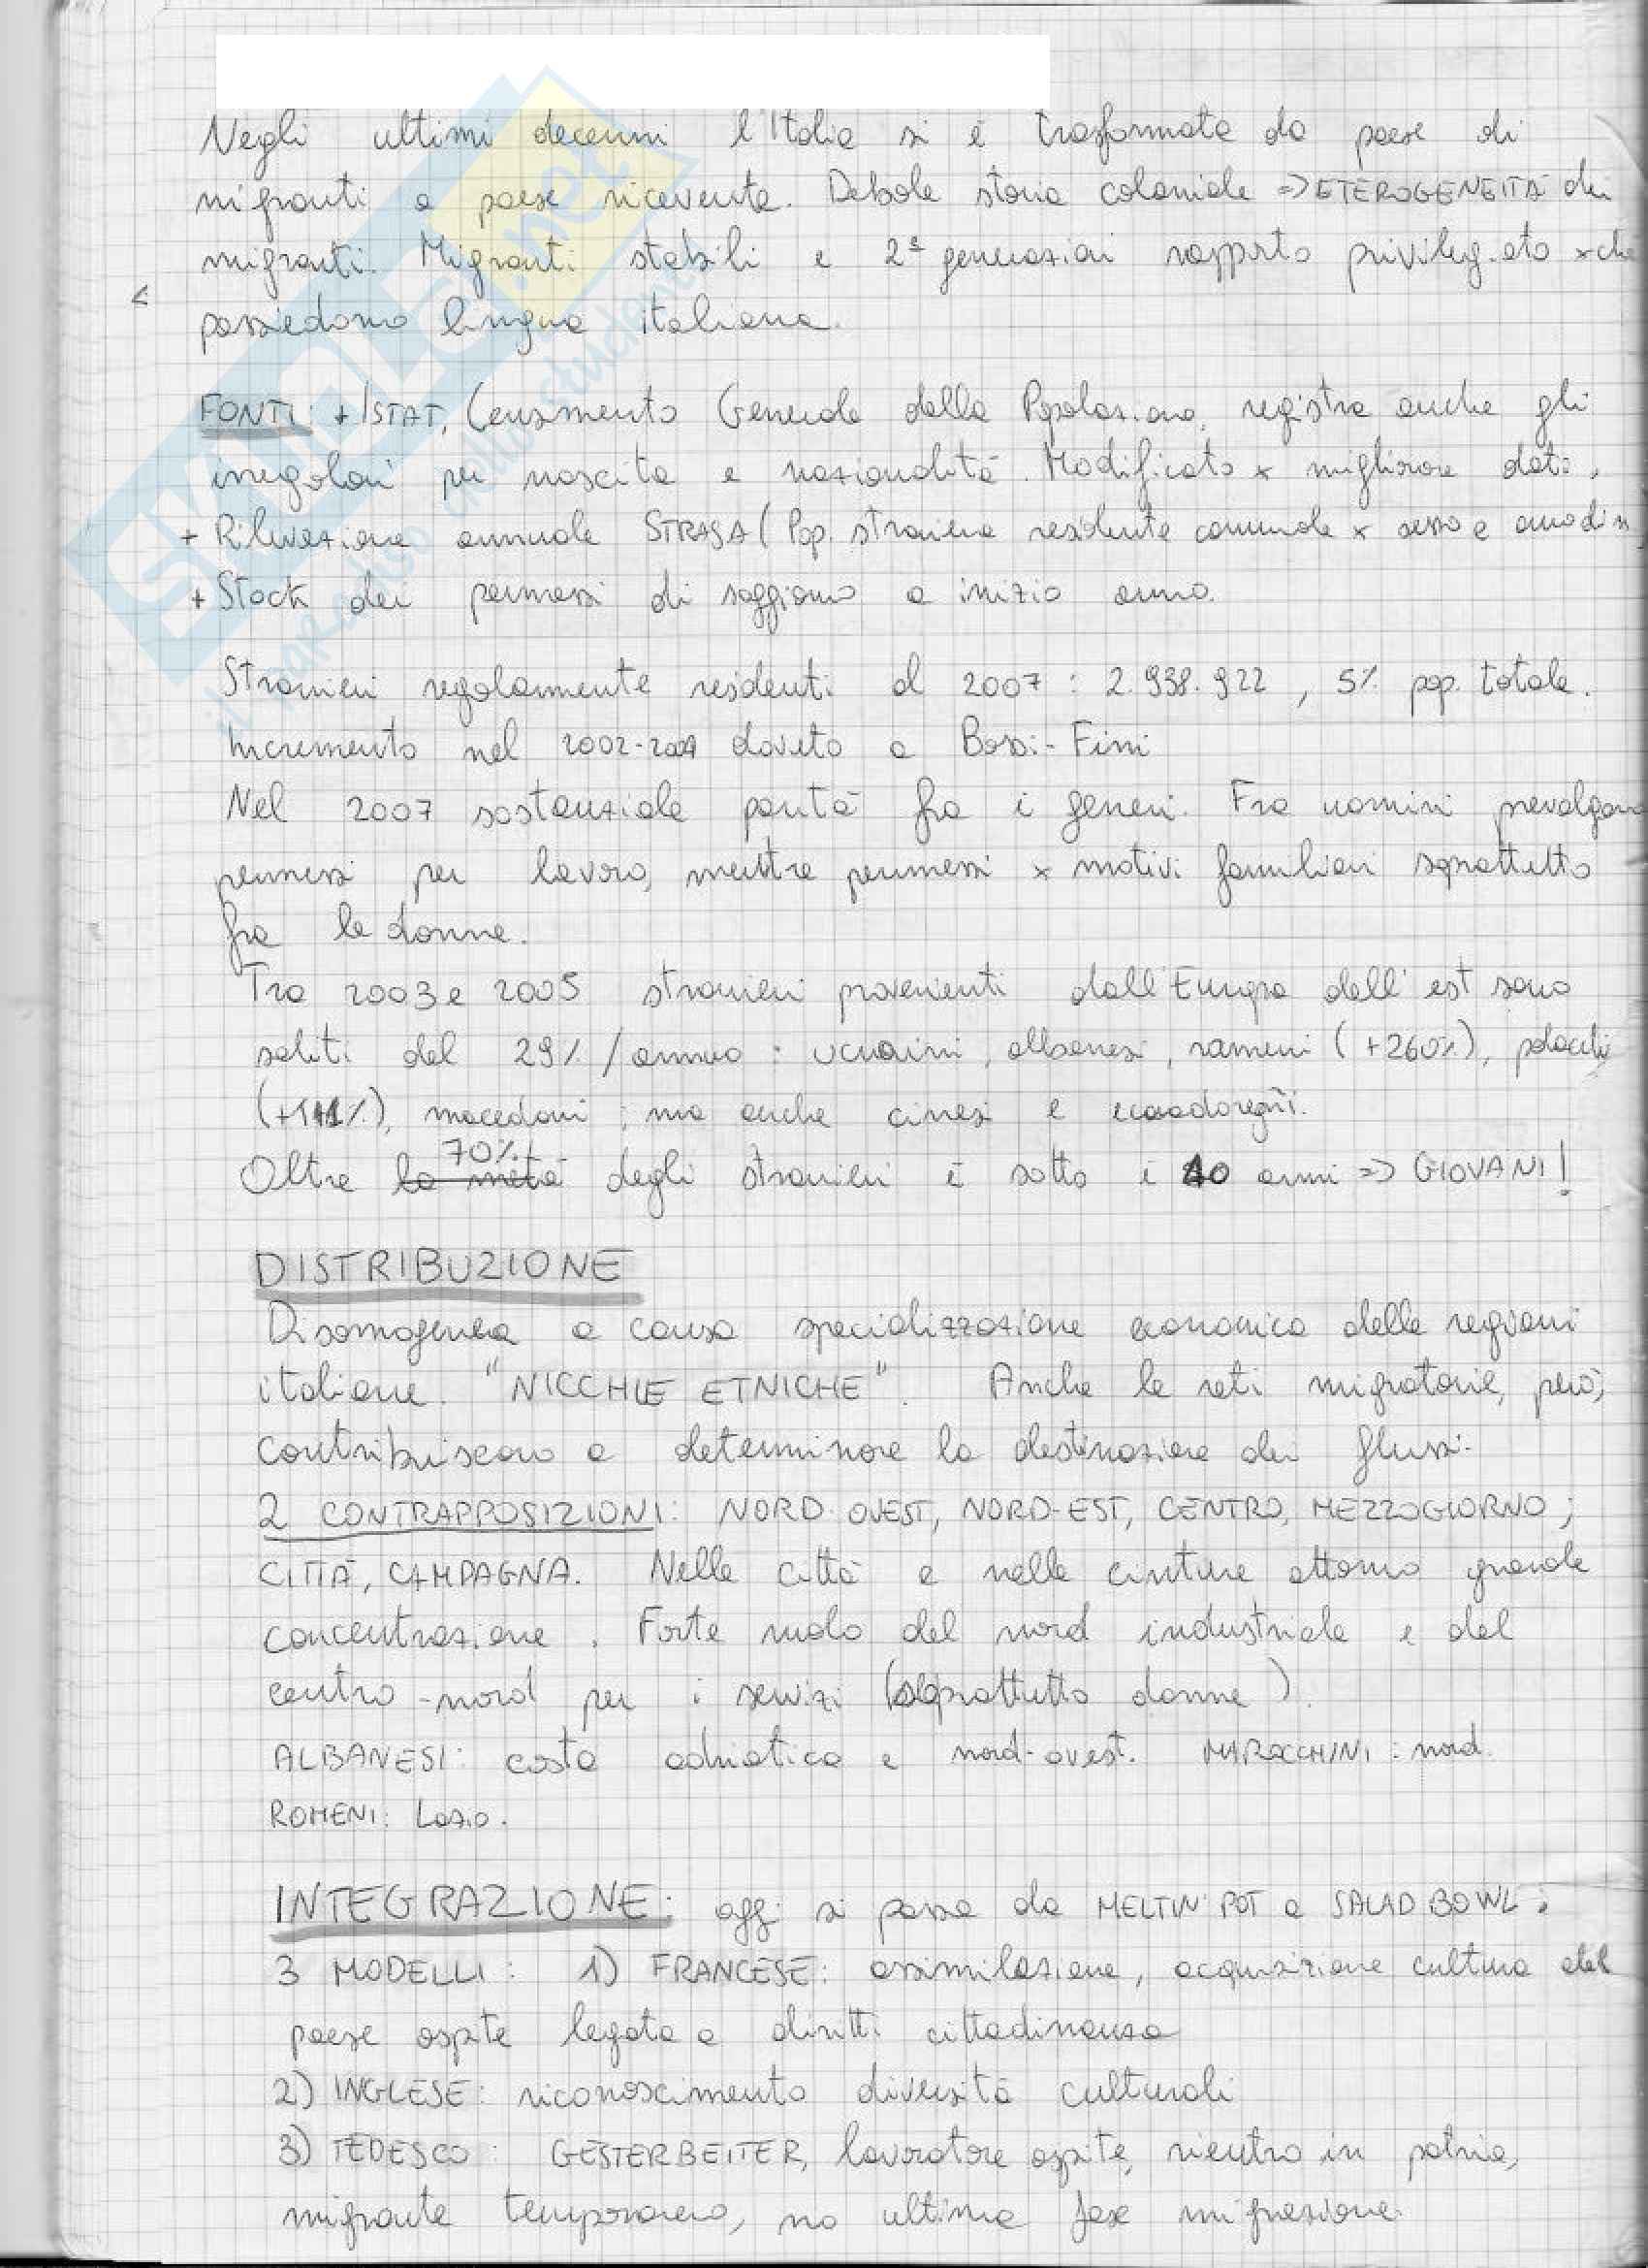 Negli ultimi decenni l'Italia si è trasformata da paese di
migranti a paese ricevente. Debole storia coloniale => ETEROGENEITÀ dei
migranti. Migranti stabili e 2ª generazioni rapporto privilegiato xchè
possiedono lingua italiana.
FONTI: + ISTAT, Censimento Generale della Popolazione, registra anche gli
irregolari per nascita e nazionalità. Modificato x migliorare dati.
+ Rilevazione annuale STRASA (Pop. straniera residente comunale x sesso e anno di n
+ Stock dei permessi di soggiorno a inizio anno.
Stranieri regolarmente residenti al 2007: 2.938.922, 5% pop. totale.
Incremento nel 2002-2004 dovuto a Bossi-Fini
Nel 2007 sostanziale parità fra i generi. Fra uomini prevalgono
permessi per lavoro, mentre permessi x motivi familiari soprattutto
fra le donne.
Tra 2003 e 2005 stranieri provenienti dall'Europa dell'est sono
saliti del 29% /annuo: ucraini, albanesi, rumeni (+260%), polacchi
(+111%), macedoni; ma anche cinesi e ecuadoregni.
Oltre la metà 70% degli stranieri è sotto i 40 anni => GIOVANI!
DISTRIBUZIONE
Disomogenea a causa specializzazione economica delle regioni
italiane. "NICCHIE ETNICHE". Anche le reti migratorie, però,
contribuiscono a determinare la destinazione dei flussi.
2 CONTRAPPOSIZIONI: NORD-OVEST, NORD-EST, CENTRO, MEZZOGIORNO;
CITTÀ, CAMPAGNA. Nelle città e nelle cinture attorno grande
concentrazione. Forte ruolo del nord industriale e del
centro-nord per i servizi (soprattutto donne).
ALBANESI: costa adriatica e nord-ovest. MAROCCHINI: nord.
ROMENI: Lazio.
INTEGRAZIONE: oggi si passa da MELTIN' POT a SALAD BOWL.
3 MODELLI: 1) FRANCESE: assimilazione, acquisizione cultura del
paese ospite legata a diritti cittadinanza
2) INGLESE: riconoscimento diversità culturali
3) TEDESCO: GESTERBEITER, lavoratore ospite, rientro in patria,
migrante temporaneo, no ultima fase migrazione.
SKUOLA.net
il paradiso dello studente